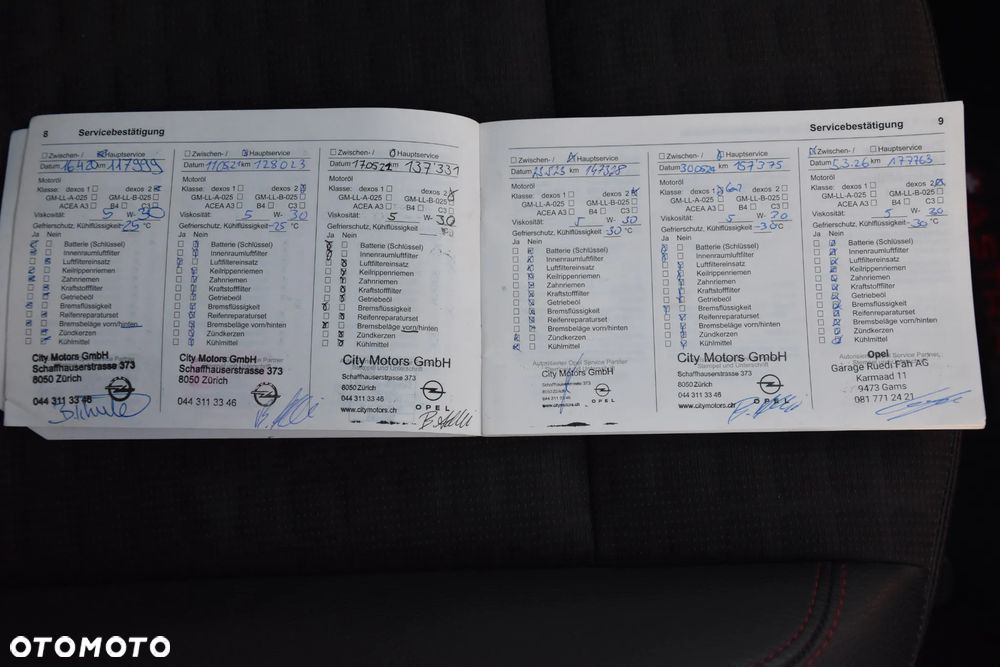 8 Servicebestätigung
Zwischen-/ Hauptservice
Datum 16.4.20 km 117999
Motoröl
Klasse: dexos 1 dexos 2
GM-LL-A-025 GM-LL-B-025
ACEA A3 B4 C3
Viskosität: 5 W- 30
Gefrierschutz, Kühlflüssigkeit -25 °C
Ja Nein
Batterie (Schlüssel)
Innenraumluftfilter
Luftfiltereinsatz
Keilrippenriemen
Zahnriemen
Kraftstofffilter
Getriebeöl
Bremsflüssigkeit
Reifenreparaturset
Bremsbeläge vorn/hinten
Zündkerzen
Kühlmittel
City Motors GmbH
Schaffhauserstrasse 373
8050 Zürich
044 311 33 46
Zwischen-/ Hauptservice
Datum 110521 km 128023
Motoröl
Klasse: dexos 1 dexos 2
GM-LL-A-025 GM-LL-B-025
ACEA A3 B4 C3
Viskosität: 5 W- 30
Gefrierschutz, Kühlflüssigkeit -25 °C
Ja Nein
Batterie (Schlüssel)
Innenraumluftfilter
Luftfiltereinsatz
Keilrippenriemen
Zahnriemen
Kraftstofffilter
Getriebeöl
Bremsflüssigkeit
Reifenreparaturset
Bremsbeläge vorn/hinten
Zündkerzen
Kühlmittel
City Motors GmbH
Schaffhauserstrasse 373
8050 Zürich
044 311 33 46
Zwischen-/ Hauptservice
Datum km 137'331
Motoröl
Klasse: dexos 1 dexos 2
GM-LL-A-025 GM-LL-B-025
ACEA A3 B4 C3
Viskosität: 5 W- 30
Gefrierschutz, Kühlflüssigkeit
Ja Nein
Batterie (Schlüssel)
Innenraumluftfilter
Luftfiltereinsatz
Keilrippenriemen
Zahnriemen
Kraftstofffilter
Getriebeöl
Bremsflüssigkeit
Reifenreparaturset
Bremsbeläge vorn/hinten
Zündkerzen
Kühlmittel
City Motors GmbH
Schaffhauserstrasse 373
8050 Zürich
044 311 33 46
www.citymotors.ch OPEL
Servicebestätigung 9
Zwischen-/ Hauptservice
Datum km 147328
Motoröl
Klasse: dexos 1 dexos 2
GM-LL-A-025 GM-LL-B-025
ACEA A3 B4 C3
Viskosität: 5 W- 30
Gefrierschutz, Kühlflüssigkeit -30 °C
Ja Nein
Batterie (Schlüssel)
Innenraumluftfilter
Luftfiltereinsatz
Keilrippenriemen
Zahnriemen
Kraftstofffilter
Getriebeöl
Bremsflüssigkeit
Reifenreparaturset
Bremsbeläge vorn/hinten
Zündkerzen
Kühlmittel
Autorisierter Opel Service Partner
Stempel und Unterschrift
City Motors GmbH
Schaffhauserstrasse 373
8050 Zürich
044 311 33 46
www.citymotors.ch OPEL
Zwischen-/ Hauptservice
Datum 300524 km 157375
Motoröl
Klasse: dexos 1
GM-LL-A-025 GM-LL-B-025
ACEA A3 B4 C3
Viskosität: 5 W- 30
Gefrierschutz, Kühlflüssigkeit -30 °C
Ja Nein
Batterie (Schlüssel)
Innenraumluftfilter
Luftfiltereinsatz
Keilrippenriemen
Zahnriemen
Kraftstofffilter
Getriebeöl
Bremsflüssigkeit
Reifenreparaturset
Bremsbeläge vorn/hinten
Zündkerzen
Kühlmittel
City Motors GmbH
Schaffhauserstrasse 373
8050 Zürich
044 311 33 46
www.citymotors.ch OPEL
Zwischen-/ Hauptservice
Datum 5.3.26 km 177763
Motoröl
Klasse: dexos 1 dexos 2
GM-LL-A-025 GM-LL-B-025
ACEA A3 B4 C3
Viskosität: 5 W- 30
Gefrierschutz, Kühlflüssigkeit -30 °C
Ja Nein
Batterie (Schlüssel)
Innenraumluftfilter
Luftfiltereinsatz
Keilrippenriemen
Zahnriemen
Kraftstofffilter
Getriebeöl
Bremsflüssigkeit
Reifenreparaturset
Bremsbeläge vorn/hinten
Zündkerzen
Kühlmittel
Opel
Garage Ruedi Fäh AG
Karmaad 11
9473 Gams
081 771 24 21
OTOMOTO